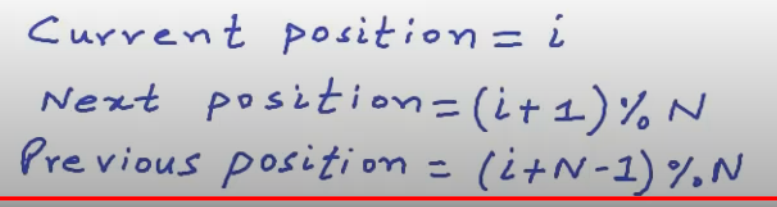 Current position = i
Next position = (i+1)%N
Previous position = (i+N-1)%N